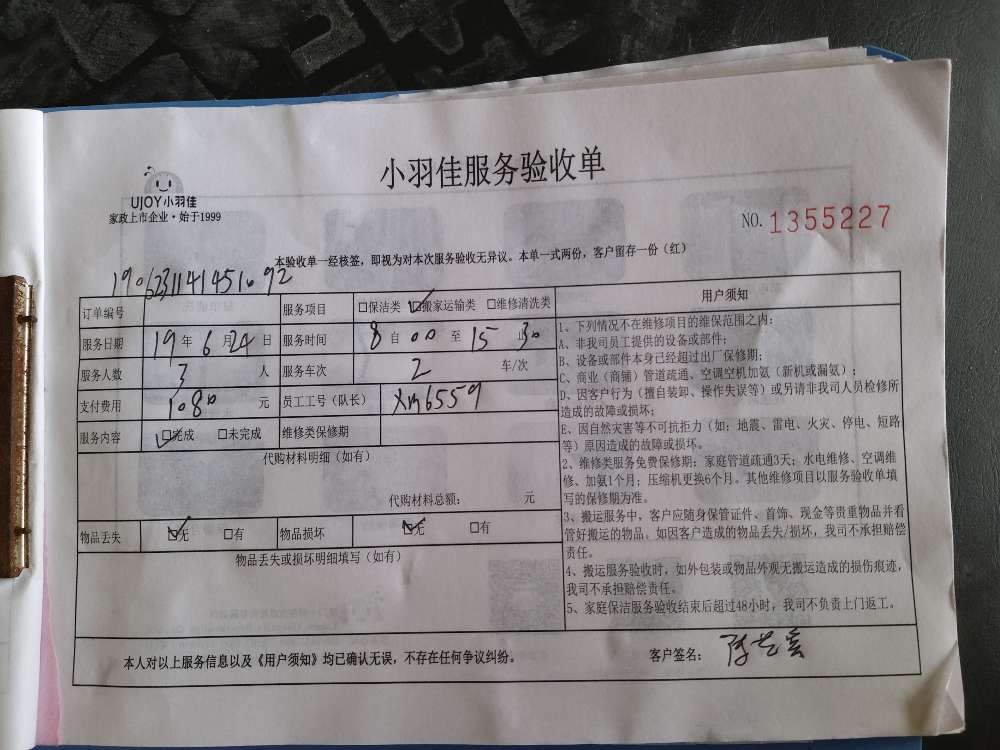 小羽佳服务验收单
UJOY小羽佳
家政上市企业·始于1999
NO. 1355227
本验收单一经核签，即视为对本次服务验收无异议。本单一式两份，客户留存一份（红）
订单编号
服务项目 □保洁类 ☑搬家运输类 □维修清洗类
服务日期 19年6月24日 服务时间 8自00至15止30
服务人数 3人 服务车次 2车/次
支付费用 1080元 员工工号（队长） xm6559
服务内容 ☑完成 □未完成 维修类保修期
代购材料明细（如有）
代购材料总额： 元
物品丢失 ☑无 □有 物品损坏 ☑无 □有
物品丢失或损坏明细填写（如有）
用户须知
1、下列情况不在维修项目的维保范围之内：
A、非我司员工提供的设备或部件；
B、设备或部件本身已经超过出厂保修期；
C、商业（商铺）管道疏通、空调空机加氨（新机或漏氨）；
D、因客户行为（擅自装卸、操作失误等）或另请非我司人员检修所
造成的故障或损坏；
E、因自然灾害等不可抗拒力（如：地震、雷电、火灾、停电、短路
等）原因造成的故障或损坏。
2、维修类服务免费保修期：家庭管道疏通3天；水电维修、空调维
修、加氨1个月；压缩机更换6个月。其他维修项目以服务验收单填
写的保修期为准。
3、搬运服务中，客户应随身保管证件、首饰、现金等贵重物品并看
管好搬运的物品。如因客户造成的物品丢失/损坏，我司不承担赔偿
责任。
4、搬运服务验收时，如外包装或物品外观无搬运造成的损伤痕迹，
我司不承担赔偿责任。
5、家庭保洁服务验收结束后超过48小时，我司不负责上门返工。
本人对以上服务信息以及《用户须知》均已确认无误，不存在任何争议纠纷。
客户签名：